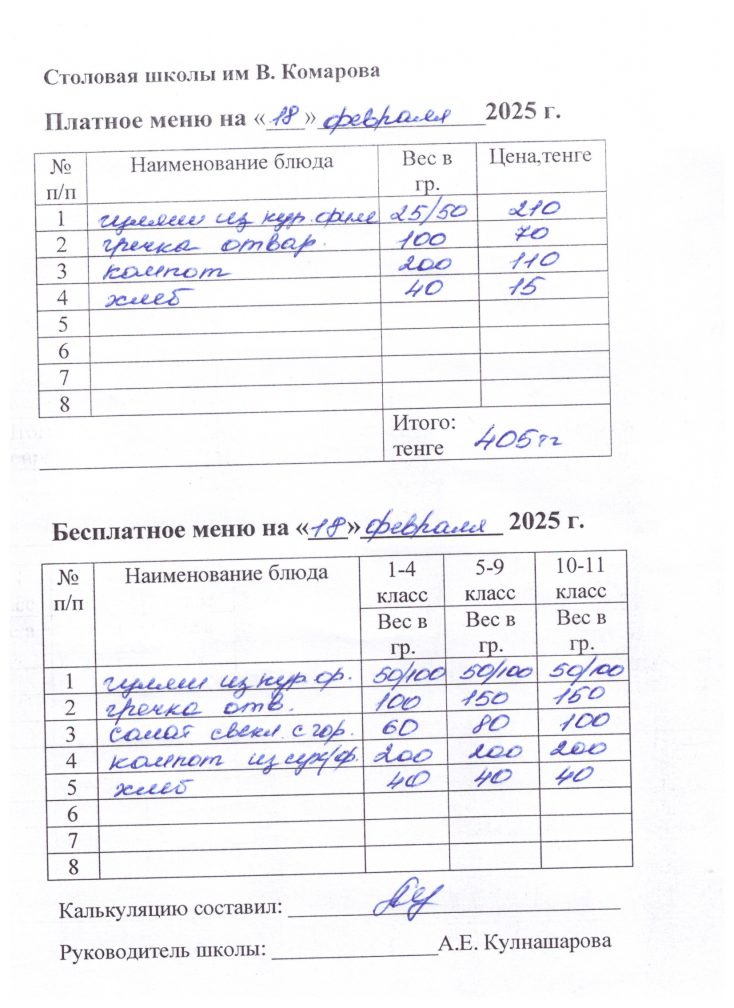 Столовая школы им В. Комарова
Платное меню на «18» февраля 2025 г.
№ п/п Наименование блюда Вес в гр. Цена,тенге
1 гуляш из кур. филе 25/50 210
2 гречка отвар. 100 70
3 компот 200 110
4 хлеб 40 15
5
6
7
8
Итого:
тенге 405 тг
Бесплатное меню на «18» февраля 2025 г.
№ п/п Наименование блюда 1-4 класс 5-9 класс 10-11 класс
Вес в гр. Вес в гр. Вес в гр.
1 гуляш из кур ф. 50/100 50/100 50/100
2 гречка отв. 100 150 150
3 салат свекл. с гор. 60 80 100
4 компот из сух/ф. 200 200 200
5 хлеб 40 40 40
6
7
8
Калькуляцию составил:
Руководитель школы: А.Е. Кулнашарова